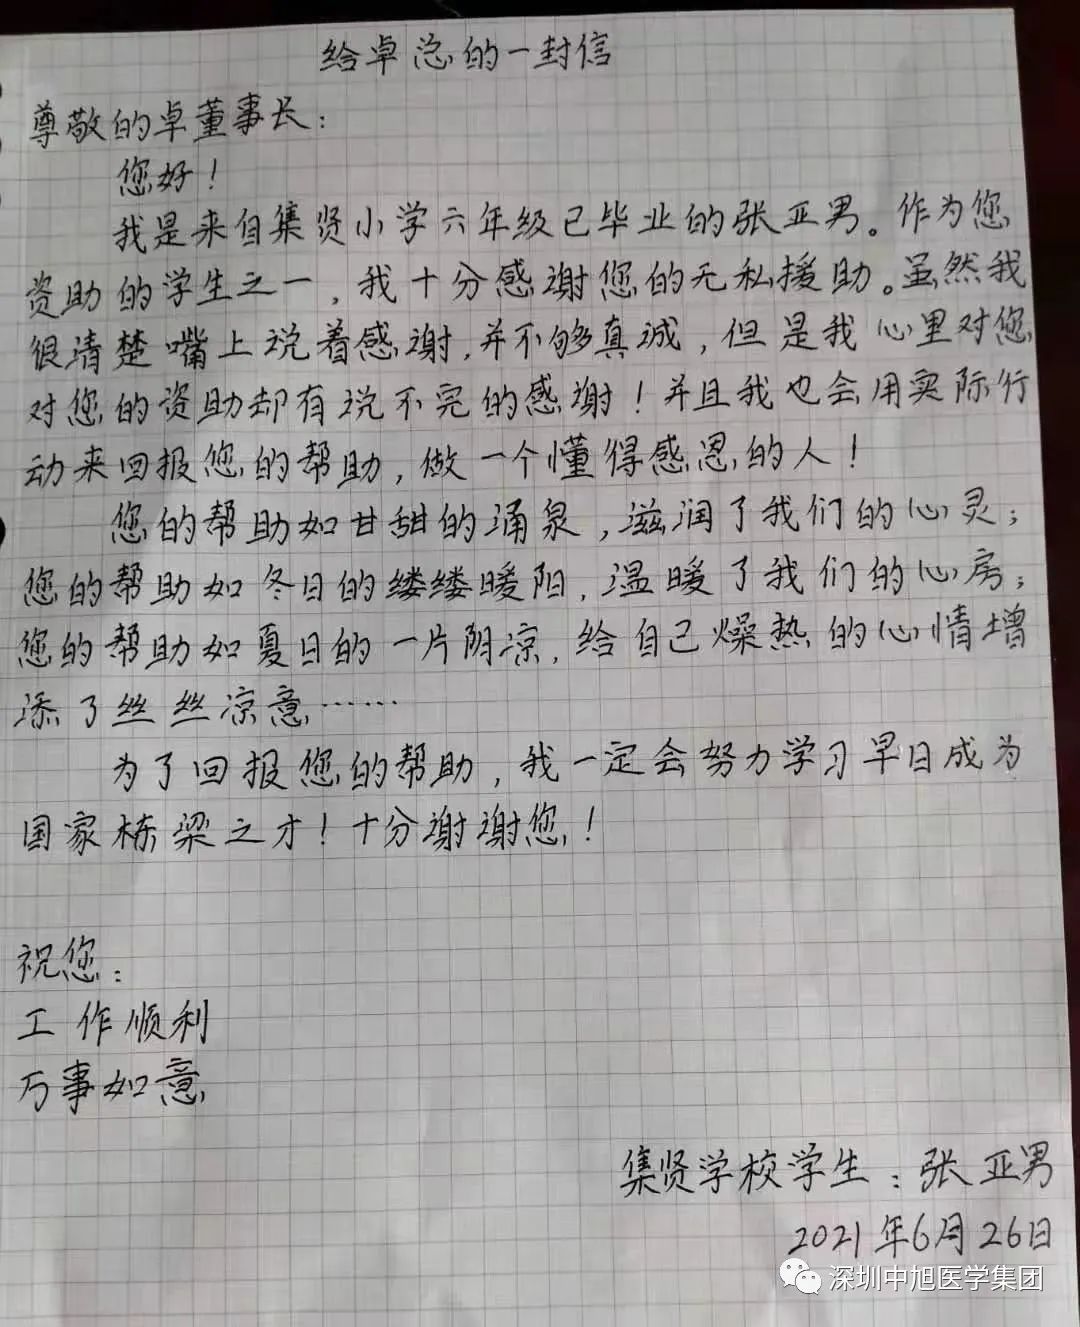 给卓总的一封信
尊敬的卓董事长：
您好！
我是来自集贤小学六年级已毕业的张亚男。作为您
资助的学生之一，我十分感谢您的无私援助。虽然我
很清楚嘴上说着感谢，并不够真诚，但是我心里对您
对您的资助却有说不完的感谢！并且我也会用实际行
动来回报您的帮助，做一个懂得感恩的人！
您的帮助如甘甜的涌泉，滋润了我们的心灵；
您的帮助如冬日的缕缕暖阳，温暖了我们的心房；
您的帮助如夏日的一片阴凉，给自己燥热的心情增
添了丝丝凉意……
为了回报您的帮助，我一定会努力学习早日成为
国家栋梁之才！十分谢谢您！
祝您：
工作顺利
万事如意
集贤学校学生：张亚男
2021年6月26日
深圳中旭医学集团